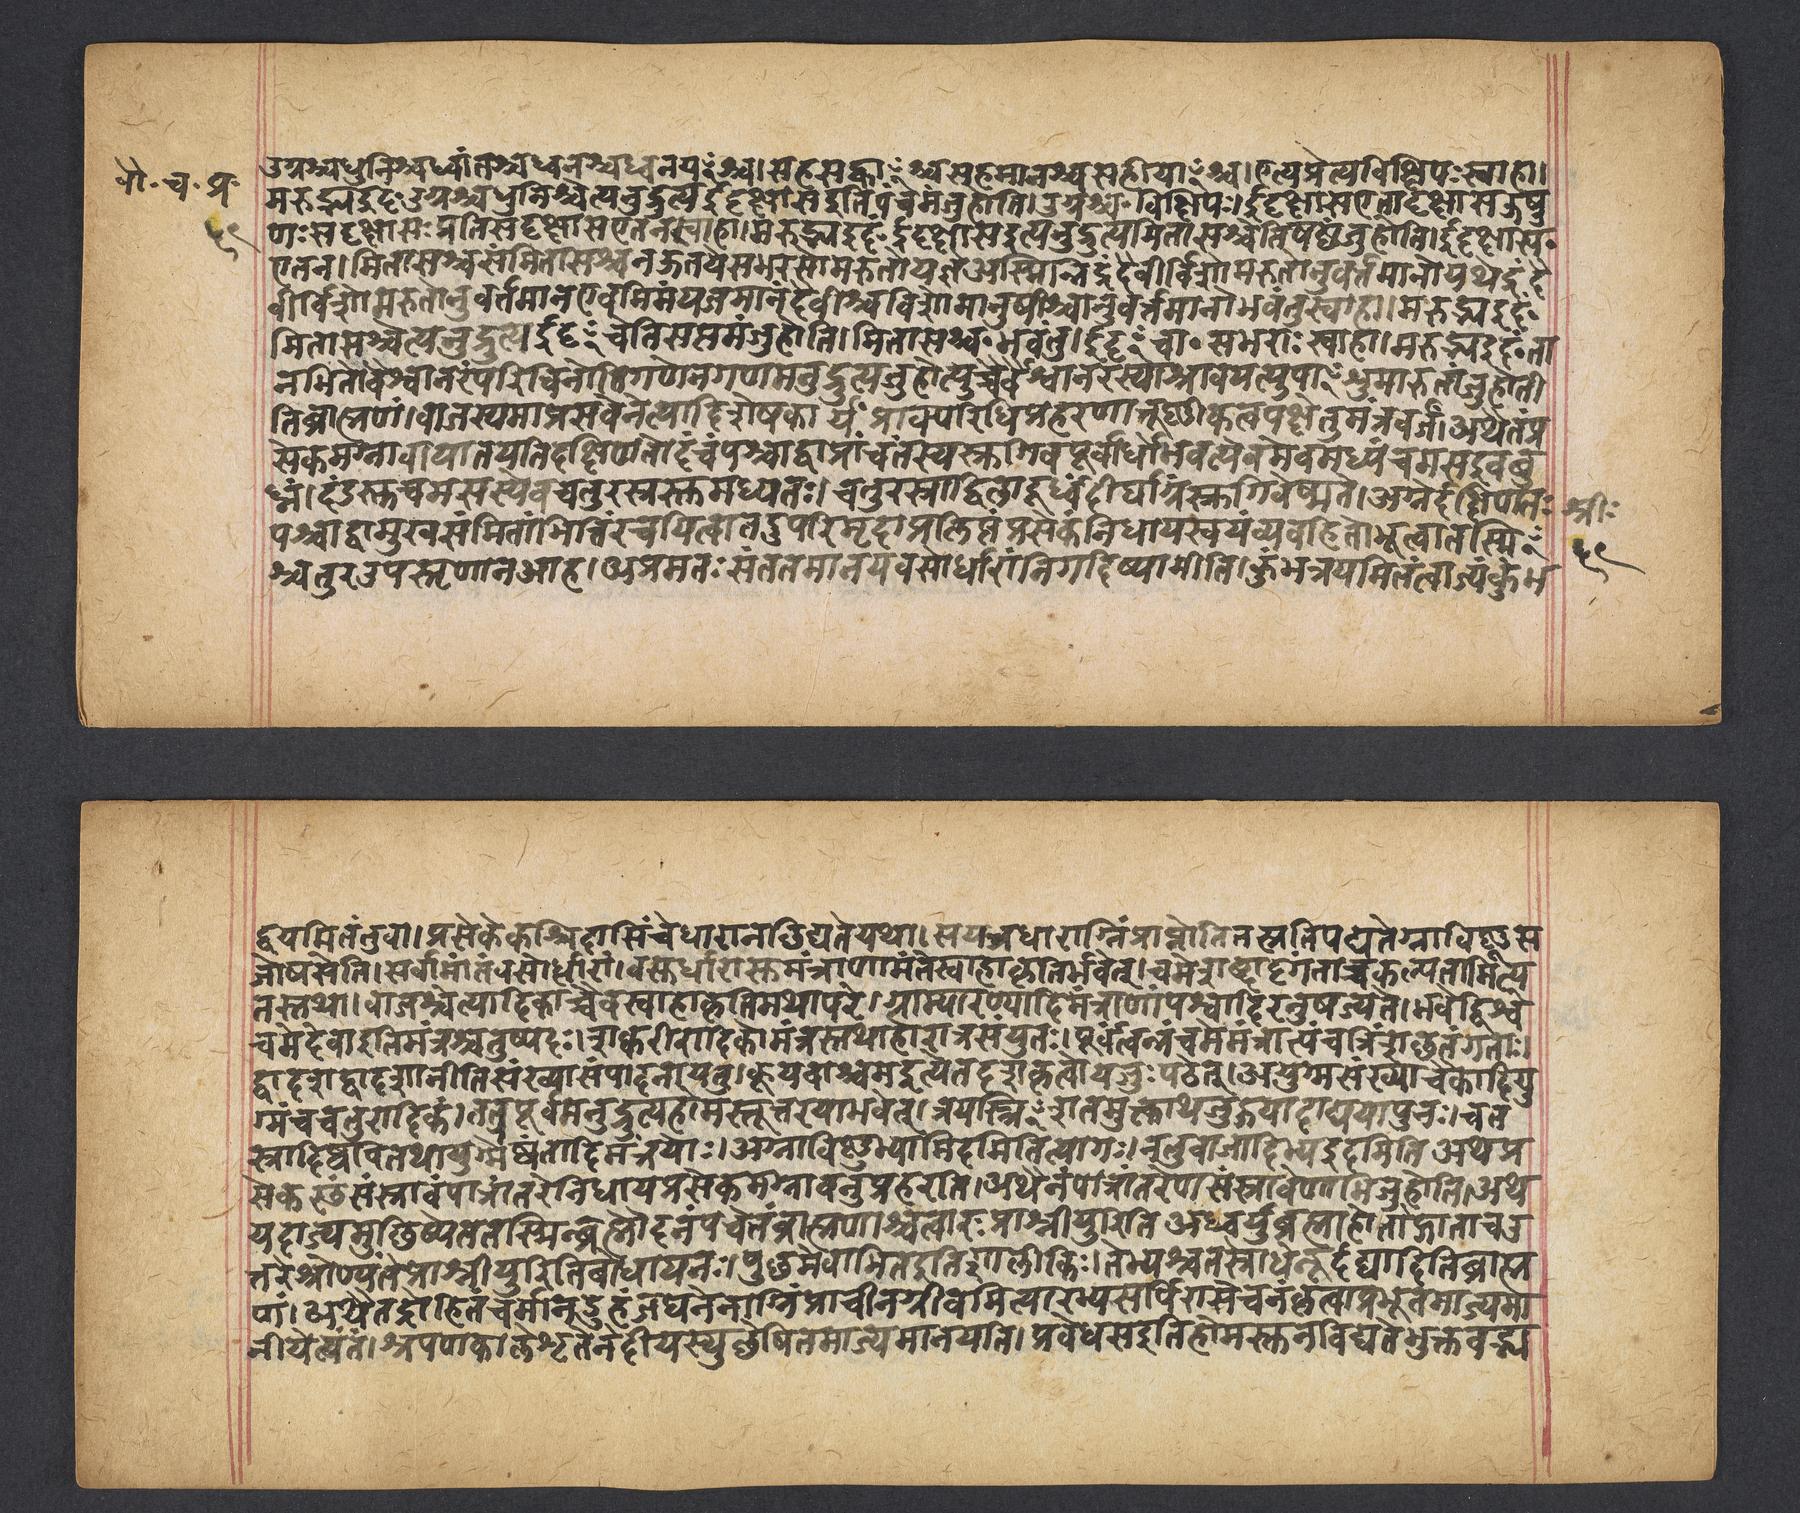 उग्रश्चधुनिश्चध्वांतश्चध्वनश्चध्वनयꣳश्च।सहसह्वाꣳश्चसहमानश्चसहीयाꣳश्च।एत्यप्रेत्यविक्षिपःस्वाहा।
पौ॰च॰प्र॰
मरुद्भ्यइदं॰उग्रश्चधुनिश्चेत्यनुद्रुत्येदृङ्दृक्षासइतिपंचमंजुहोति।उग्रश्च॰विक्षिपः।ईदृक्षासएतादृक्षासऊषु
५९
णःसदृक्षासःप्रतिसदृक्षासएतनस्वाहा।मरुद्भ्यइदं॰ईदृक्षासइत्यनुद्रुत्यमितासश्चेतिषष्ठंजुहोति।ईदृक्षास॰
एतन।मितासश्चसंमितासश्चनऊतयेसभरसोमरुतोयज्ञेअस्मिन्निंद्रंदैवीर्विशोमरुतोनुवर्त्मानोयथेंद्रंदै
वीर्विशोमरुतोनुवर्त्मानएवमिमंयजमानंदैवीश्चविशोमानुषीश्चानुवर्त्मानोभवंतुस्वाहा।मरुद्भ्यइदं॰
मितासश्चेत्यनुद्रुत्येदृङ्चेतिसप्तमंजुहोति।मितासश्च॰भवंतु।ईदृङ्चा॰सभराःस्वाहा।मरुद्भ्यइदं॰ता
नमितोवैश्वानरंपरिचिनोतिगणेनगणमनुद्रुत्यजुहोत्युच्चैर्वैश्वानरस्याश्रावयत्युपाꣳशुमारुतांजुहोती
तिब्राह्मणं।वाजस्यमाप्रसवेनेत्यादिशेषकार्यं॰प्राक्परिधिप्रहरणानुष्ठीकल्पपक्षेतुमंत्रवर्जं।अथैतंप्र
सेकमग्नावायातयतिदक्षिणतोदंचंपश्चाद्वाप्रांचंतस्यस्रुगिवपूर्वार्धोभवत्येवमेवमध्यंचमसइवबु
ध्नं।दंडस्तचमसस्येवचतुरस्रस्तमध्यतः।चतुरस्राद्बिलादूर्ध्वंदीर्घाग्रंस्रुगिवेष्यते।अग्नेर्दक्षिणतः
श्रीः
पश्चाद्वामुखसंमितांभित्तिंरचयित्वातदुपरिमृदाप्रलिप्तंप्रसेकंनिधायस्वयंव्यवहितोभूत्वातस्मिꣳ
५९
श्चतुरउपस्तृणानआह।अप्रमत्तःसंततमानयवसोर्धारांनिगदिष्यामीति।कुंभत्रयमितंत्वाज्यंकुंभ
द्वयमितंतुवा।प्रसेकेकश्चिदासिंचेद्धारानछिद्यतेयथा।सयत्रधाराग्निंप्राप्नोतितत्प्रतिपद्यतेग्नाविष्णूस
जोषसेति।सर्वामांतंवसोर्धारां।वस्तर्धारास्तमंत्राणामंतेस्वाहाकृतिर्भवेत्।चमेशब्दादृगंताच्चकल्पतामित्य
तस्तथा।वाजश्चेत्यादिकाच्चैवस्वाहाकृतिमथापरे।ग्राम्यारण्यादिमंत्राणांपश्चादिरनुषज्यते।भवेद्विश्वे
चमेदेवाइतिमंत्रश्चतुष्पदः।शक्वरीरादिकोमंत्रस्तथाहोरात्रसंयुतः।पूर्वेत्वन्यंचममंत्रात्पंचत्रिंशछतंगताः।
द्वादशद्वादशानीतिसंख्यासंपादनायतु।क्रूयवाश्चमइत्येतदृशकृत्वायजुःपठेत्।अयुग्मसंख्याचैकादियु
ग्मंचचतुरादिकं।तत्रपूर्वमनुद्रुत्यहोमस्तूत्तरयाभवेत्।त्रयस्त्रिꣳशतमुक्त्वाथजुहुयादाद्ययापुनः।चत
स्रादिष्ववितथायुग्मेष्वंतादिमंत्रयोः।अग्नाविष्णुभ्यामिदमितित्यागः।नतुवाजादिभ्यइदमिति अथप्र
सेकस्थंसंस्रावंपात्रांतरेनिधायप्रसेकमग्नावनुप्रहरति।अथैनंपात्रांतरेणसंस्रावेणाभिजुहोति।अथ
यदाज्यमुछिष्यतेतस्मिन्ब्रह्मौदनंपचेतंब्राह्मणाश्चत्वारःप्राश्नीयुरिति अध्वर्युब्रह्माहोतोद्गाताचउ
त्तरेश्रोण्यंतेप्राश्नीयुरितिबौधायनः।पुछमेवाभितइतिशालीकिः।तेभ्यश्चतस्रोधेनूर्दद्यादितिब्राह्म
णं।अथैतद्रोहितंचर्मानडुहंजघनेनाग्निंप्राचीनग्रीवमित्यारभ्यसर्पिरासेचनंकृत्वाप्रभूतमाज्यमा
नीयेत्यंतं।श्रपणकालेशृतेनदीयस्युछेषितमाज्यमानयति।प्रवेधसइतिहोमस्तनविद्यतेभुक्तवद्भ्य